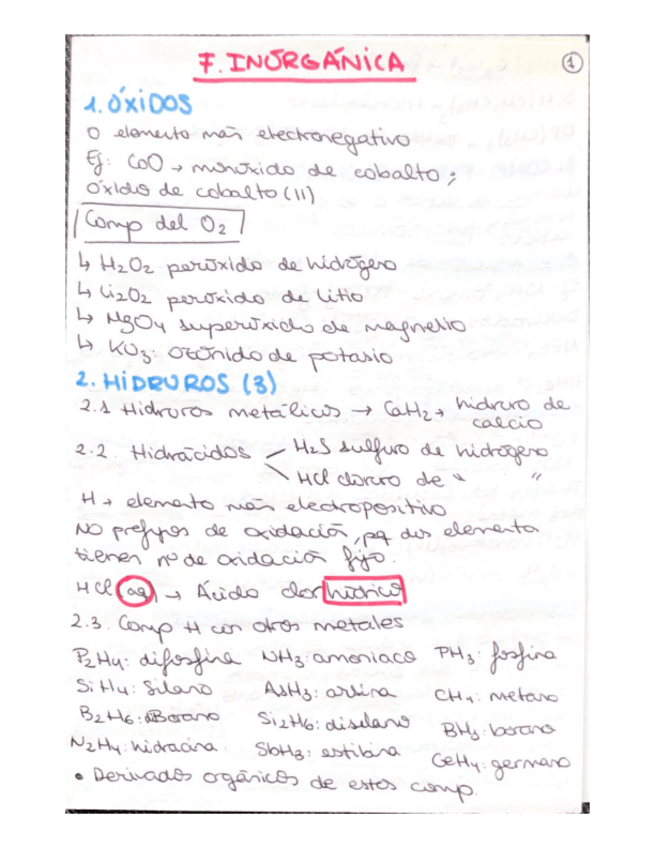 F. INORGÁNICA
1
1. ÓXIDOS
O elemento más electronegativo
Ej: CoO → monóxido de cobalto;
óxido de cobalto (II)
Comp del O2
↳ H2O2 peróxido de hidrógeno
↳ Li2O2 peróxido de litio
↳ MgO4 superóxido de magnesio
↳ KO3: ozónido de potasio
2. HIDRUROS (3)
2.1 Hidruros metálicos → CaH2 → hidruro de
calcio
2.2. Hidrácidos H2S sulfuro de hidrógeno
HCl cloruro de " "
H → elemento más electropositivo
No prefijos de oxidación, pq dos elementa
tienen nº de oxidación fijo.
HCl (aq) → Ácido clorhídrico
2.3. Comp H con otros metales
P2H4: difosfina NH3: amoniaco PH3: fosfina
SiH4: Silano AsH3: arsina CH4: metano
B2H6: diBorano Si2H6: disilano BH3: borano
N2H4: hidracina SbH3: estibina GeH4: germano
• Derivados orgánicos de estos comp.